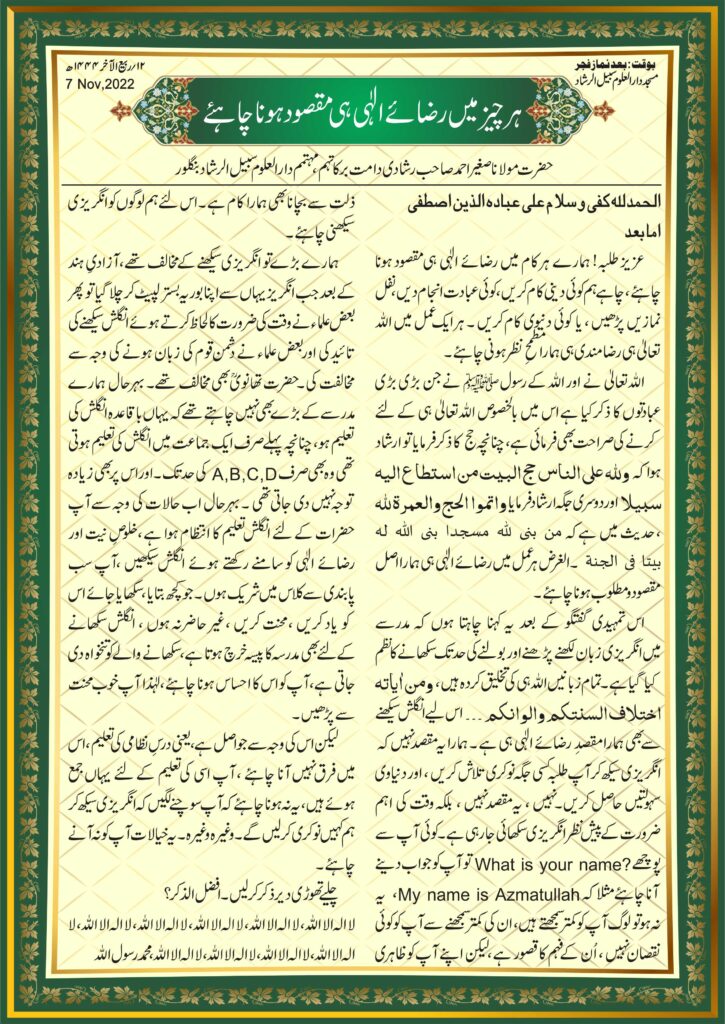 بوقت: بعد نماز فجر
مسجد دارالعلوم سبیل الرشاد
۱۲؍ربیع الآخر ۱۴۴۴ھ
7 Nov,2022
ہر چیز میں رضائے الٰہی ہی مقصود ہونا چاہئے
حضرت مولانا صغیر احمد صاحب رشادی دامت برکاتہم، مہتمم دارالعلوم سبیل الرشاد بنگلور
الحمدلله كفى وسلام على عباده الذين اصطفى
اما بعد
عزیز طلبہ! ہمارے ہر کام میں رضائے الٰہی ہی مقصود ہونا
چاہئے، چاہے ہم کوئی دینی کام کریں، کوئی عبادت انجام دیں، نفل
نمازیں پڑھیں، یا کوئی دنیوی کام کریں۔ ہر ایک عمل میں اللہ
تعالٰی ہی رضامندی ہی ہمارا مطمحِ نظر ہونی چاہئے۔
اللہ تعالٰی نے اور اللہ کے رسول ﷺ نے جن بڑی بڑی
عبادتوں کا ذکر کیا ہے اس میں بالخصوص اللہ تعالٰی ہی کے لئے
کرنے کی صراحت بھی فرمائی ہے، چنانچہ حج کا ذکر فرمایا تو ارشاد
ہوا کہ ولله على الناس حج البيت من استطاع اليه
سبيلا اور دوسری جگہ ارشاد فرمایا واتموا الحج والعمرة لله
، حدیث میں ہے کہ من بنى لله مسجدا بنى الله له
بيتا فى الجنة ۔ الغرض ہر عمل میں رضائے الٰہی ہی ہمارا اصل
مقصود و مطلوب ہونا چاہئے۔
اس تمہیدی گفتگو کے بعد یہ کہنا چاہتا ہوں کہ مدرسے
میں انگریزی زبان لکھنے پڑھنے اور بولنے کی حد تک سکھانے کا نظم
کیا گیا ہے۔ تمام زبانیں اللہ ہی کی تخلیق کردہ ہیں، ومن اياته
اختلاف السنتكم والوانكم ... اس لیے انگلش سیکھنے
سے بھی ہمارا مقصد رضائے الٰہی ہی ہے۔ ہمارا یہ مقصد نہیں کہ
انگریزی سیکھ کر آپ طلبہ کسی جگہ نوکری تلاش کریں، اور دنیاوی
سہولتیں حاصل کریں۔ نہیں، یہ مقصد نہیں، بلکہ وقت کی اہم
ضرورت کے پیش نظر انگریزی سکھائی جارہی ہے۔ کوئی آپ سے
پوچھے What is your name? تو آپ کو جواب دینے
آنا چاہئے مثلا کہ My name is Azmatullah، یہ
نہ ہو تو لوگ آپ کو کمتر سمجھتے ہیں، ان کی کمتر سمجھنے سے آپ کو کوئی
نقصان نہیں، اُن کے فہم کا قصور ہے، لیکن اپنے آپ کو ظاہری
ذلت سے بچانا بھی ہمارا کام ہے۔ اس لئے ہم لوگوں کو انگریزی
سیکھنی چاہئے۔
ہمارے بڑے تو انگریزی سیکھنے کے مخالف تھے، آزادیٔ ہند
کے بعد جب انگریز یہاں سے اپنا بوریہ بستر لپیٹ کر چلا گیا تو پھر
بعض علماء نے وقت کی ضرورت کا لحاظ کرتے ہوئے انگلش سیکھنے کی
تائید کی اور بعض علماء نے دشمن قوم کی زبان ہونے کی وجہ سے
مخالفت کی۔ حضرت تھانویؒ بھی مخالف تھے۔ بہرحال ہمارے
مدرسے کے بڑے بھی نہیں چاہتے تھے کہ یہاں باقاعدہ انگلش کی
تعلیم ہو، چنانچہ پہلے صرف ایک جماعت میں انگلش کی تعلیم ہوتی
تھی وہ بھی صرف A,B,C,D کی حد تک۔ اور اس پر بھی زیادہ
توجہ نہیں دی جاتی تھی۔ بہرحال اب حالات کی وجہ سے آپ
حضرات کے لئے انگلش تعلیم کا انتظام ہوا ہے، خلوصِ نیت اور
رضائے الٰہی کو سامنے رکھتے ہوئے انگلش سیکھیں، آپ سب
پابندی سے کلاس میں شریک ہوں۔ جو کچھ بتایا، سکھایا جائے اس
کو یاد کریں، محنت کریں، غیر حاضر نہ ہوں، انگلش سکھانے
کے لئے بھی مدرسہ کا پیسہ خرچ ہوتا ہے، سکھانے والے کو تنخواہ دی
جاتی ہے، آپ کو اس کا احساس ہونا چاہئے، لہٰذا آپ خوب محنت
سے پڑھیں۔
لیکن اس کی وجہ سے جو اصل ہے، یعنی درسِ نظامی کی تعلیم، اس
میں فرق نہیں آنا چاہئے، آپ اسی کی تعلیم کے لئے یہاں جمع
ہوئے ہیں، یہ نہ ہونا چاہئے کہ آپ سوچنے لگیں کہ انگریزی سیکھ کر
ہم کہیں نوکری کرلیں گے۔ وغیرہ وغیرہ۔ یہ خیالات آپ کو نہ آنے
چاہئے۔
چلیے تھوڑی دیر ذکر کرلیں۔ افضل الذکر؟
لا الہ الا اللہ، لا الہ الا اللہ، لا الہ الا اللہ، لا الہ الا اللہ، لا الہ
الا اللہ، لا الہ الا اللہ، لا الہ الا اللہ، لا الہ الا اللہ، محمد رسول اللہ